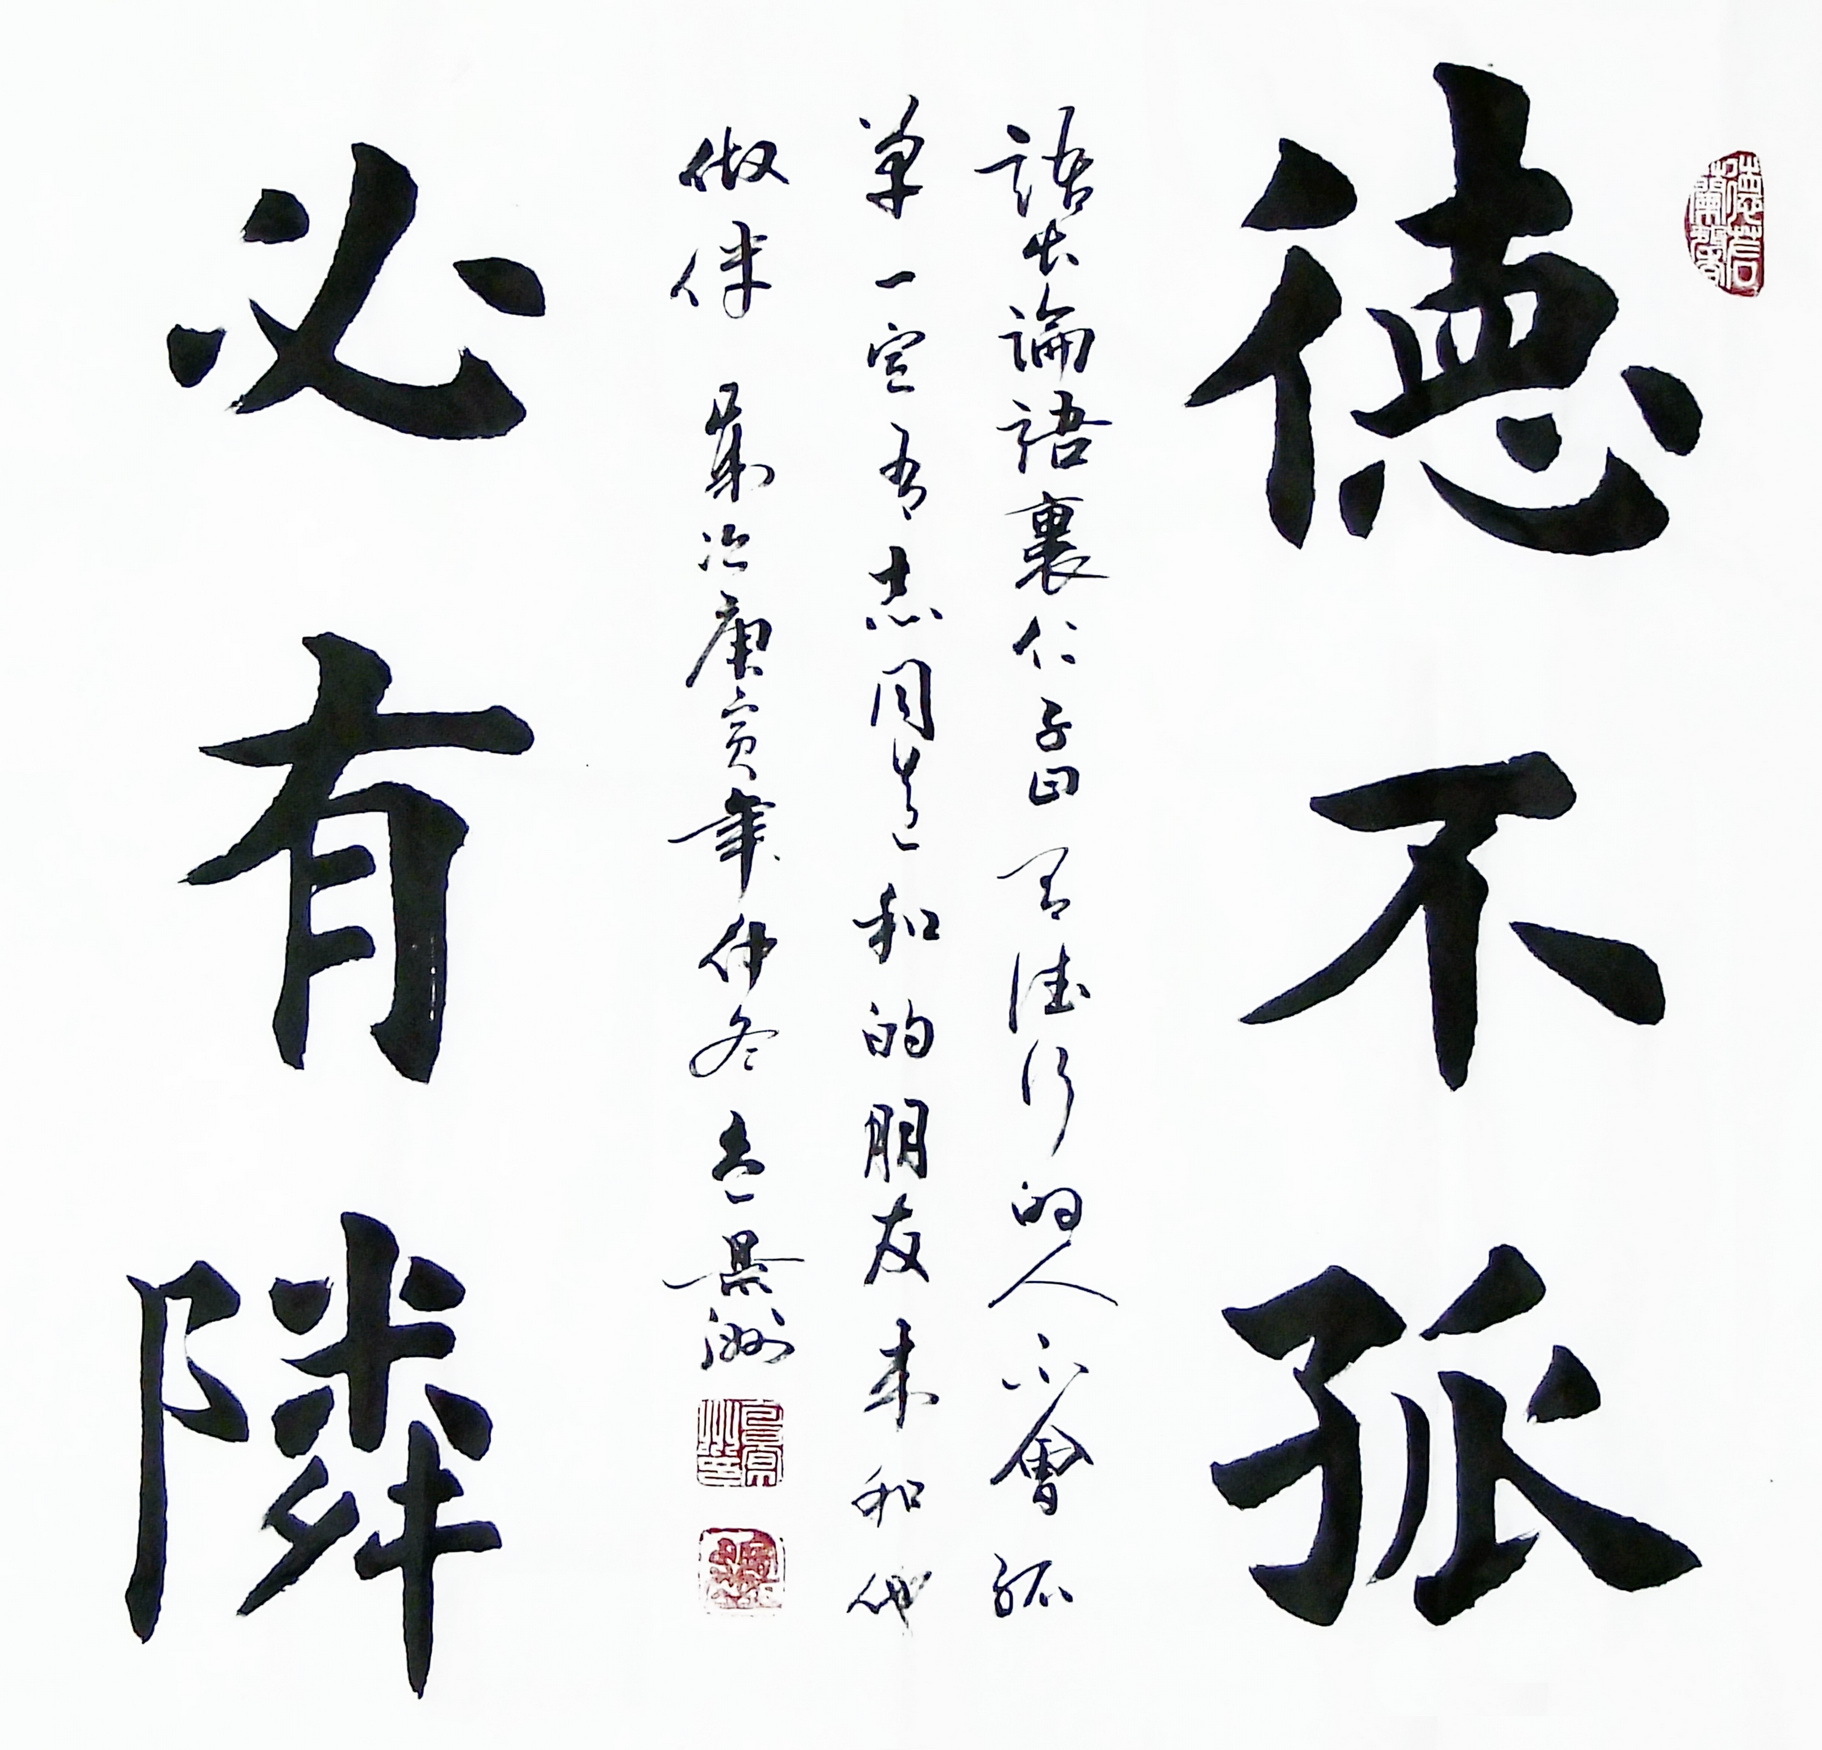 德若蘭馨
德不孤
語出論語裏仁子曰有德行的人不會孤
單一定有志同道和的朋友來和他
做伴 歲次庚寅年仲冬 景洲
必有隣